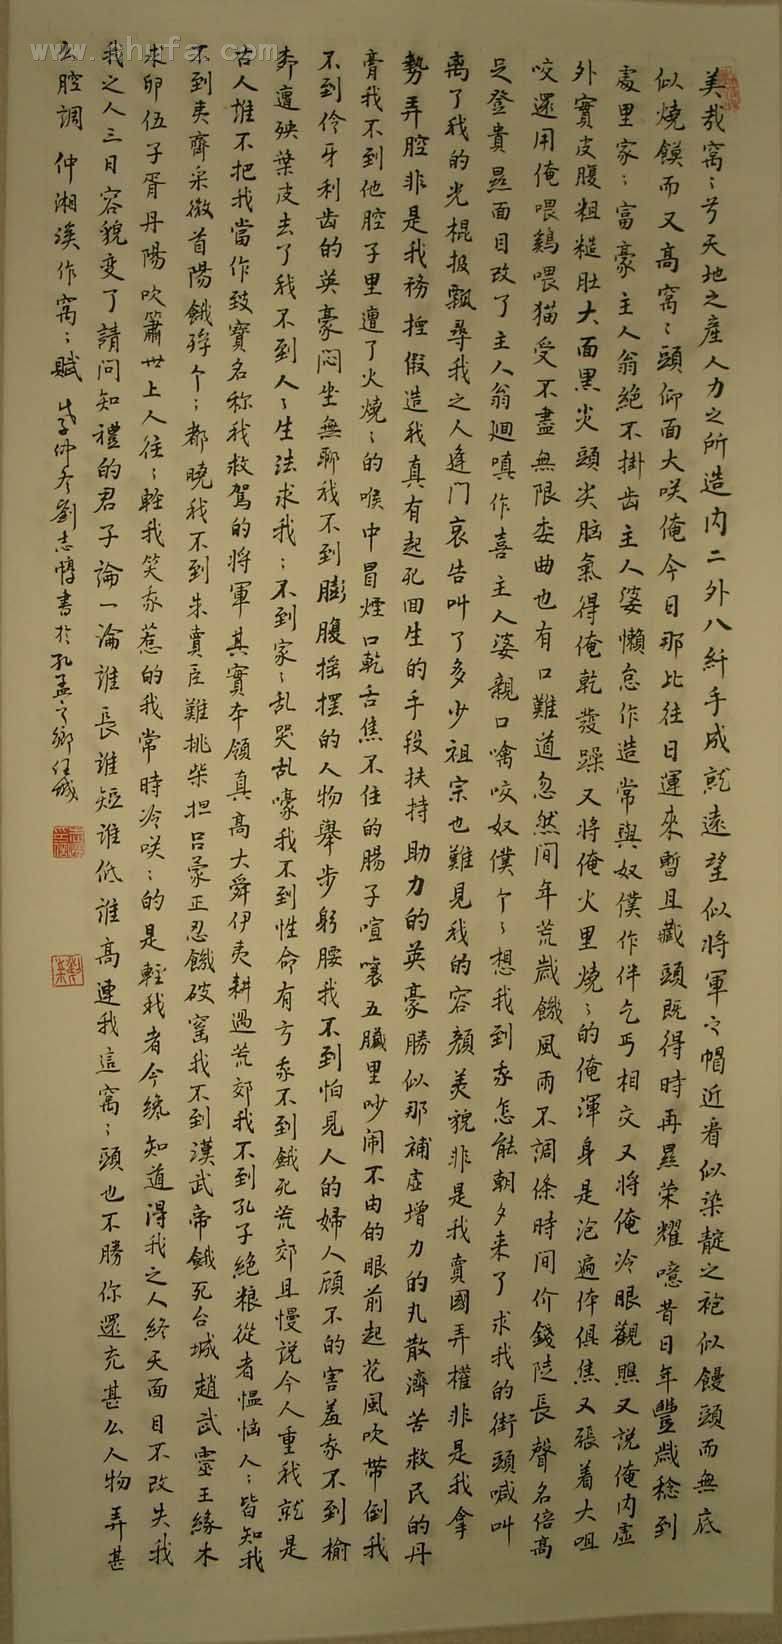 www.shufa.com
美哉窩〻兮天地之產人力之所造內二外八纤手成就遠望似將軍之帽近看似染靛之袍似饅頭而無底
似燒饃而又高窩〻頭仰面大咲俺今日那比往日運來暫且藏頭既得時再显荣耀噫昔日年豐歲稔到
處里家〻富豪主人翁絕不掛齿主人婆懶怠作造常與奴僕作伴乞丐相交又將俺冷眼觀瞧又說俺內虛
外實皮腹粗糙肚大面黑尖頭尖脑氣得俺乾發躁又將俺火里燒〻的俺渾身是泡遍体俱焦又張着大咀
咬還用俺喂鷄喂猫受不盡無限委曲也有口難道忽然间年荒歲饑風雨不調條時间价錢陡長聲名倍高
足登貴显面目改了主人翁迴嗔作喜主人婆親口噙咬奴僕个〻想我到家怎能朝夕来了求我的街頭喊叫
离了我的光棍扱瓢尋我之人逢门哀告叫了多少祖宗也難見我的容顏美貌非是我賣國弄權非是我拿
勢弄腔非是我務捏假造我真有起死回生的手段扶持助力的英豪勝似那補虛增力的丸散濟苦救民的丹
膏我不到他腔子里遭了火燒〻的喉中冒煙口乾舌焦不住的腸子喧嚷五臟里吵闹不由的眼前起花風吹带倒我
不到伶牙利齿的英豪闷坐無聊我不到膨腹摇摆的人物舉步躬腰我不到怕見人的婦人顾不的害羞家不到榆
柰遭殃葉皮去了我不到人〻生法求我〻不到家〻乱哭乱嚎我不到性命有亏家不到餓死荒郊且慢說今人重我就是
古人誰不把我當作致寶名称我救駕的將軍其實本領真高大舜伊夷耕過荒郊我不到孔子絕粮從者愠恼人〻皆知我
不到夷齊采微首陽餓殍个〻都曉我不到朱賣臣難挑柴担吕蒙正忍饑破窑我不到漢武帝餓死台城趙武靈王緣木
求卵伍子胥丹陽吹簫世上人往〻輕我笑家惹的我常時冷咲〻的是輕我者今纔知道得我之人終天面目不改失我
我之人三日容貌变了請问知禮的君子論一淪誰長誰短誰低誰高連我這窩〻頭也不勝你還充甚么人物弄甚
么腔調 仲湘溪作窩〻賦 戊子仲冬劉志惇書於孔孟之鄉任城